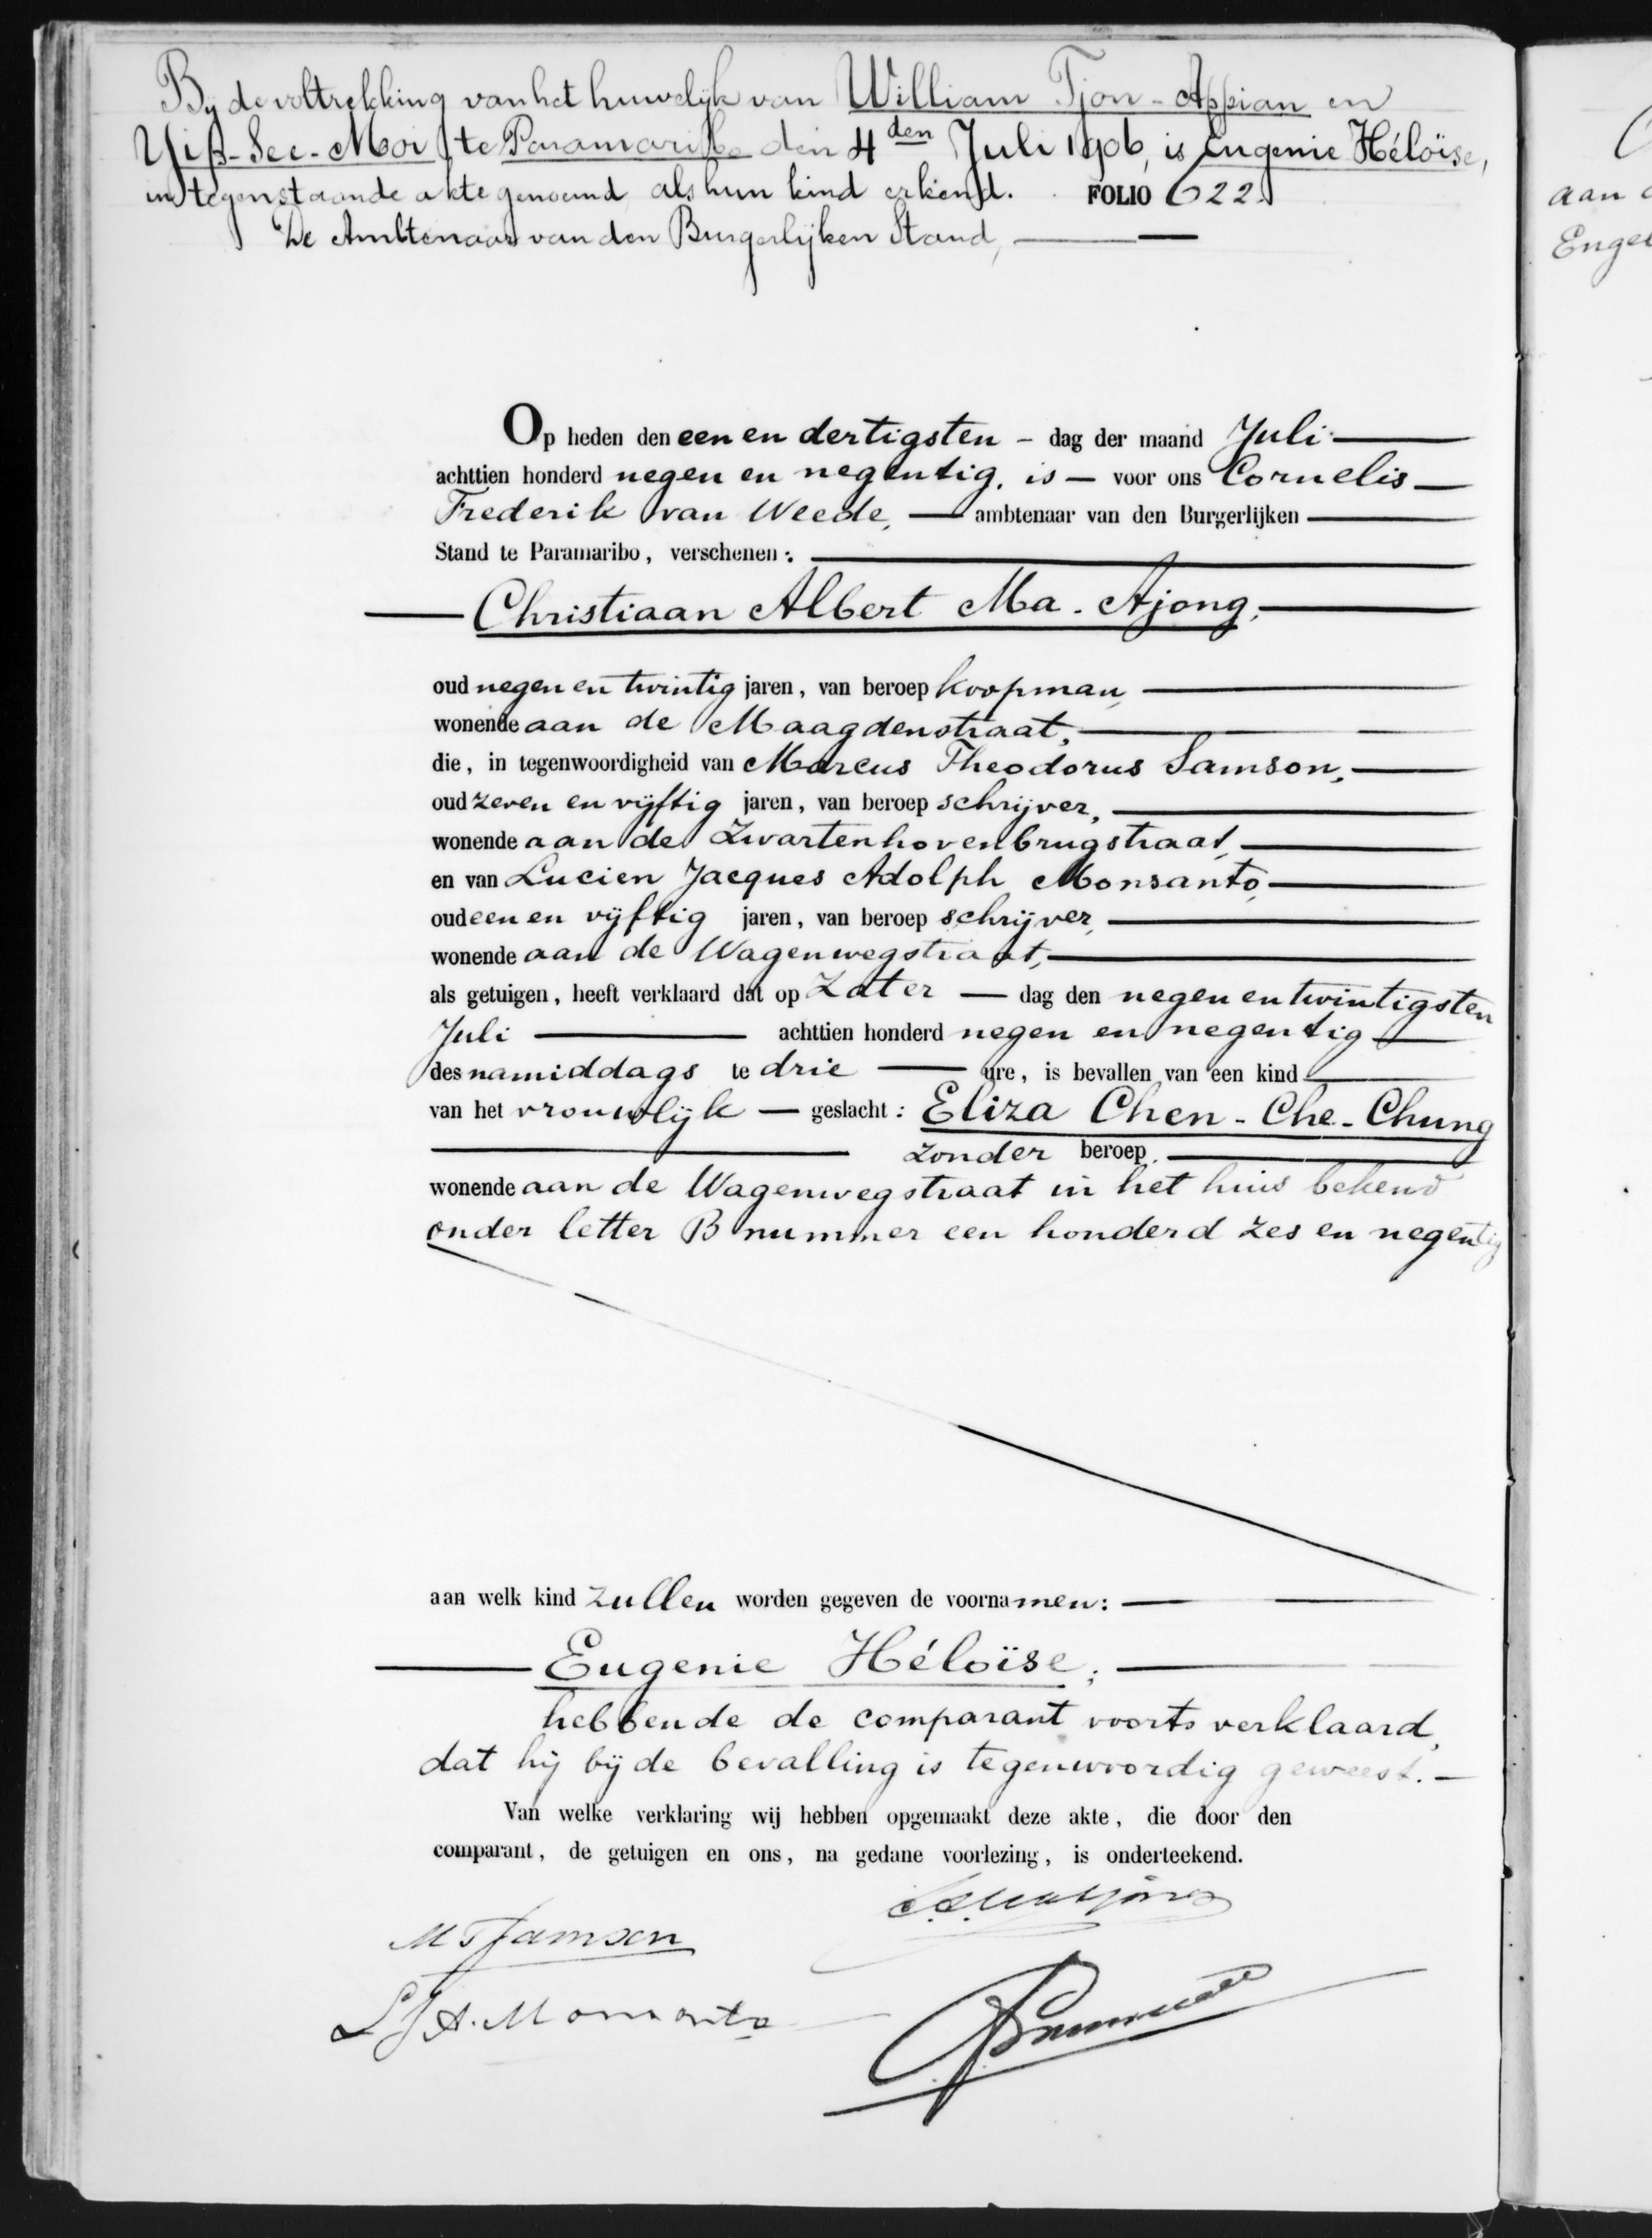 By de voltrekking van het huwelijk van William Tjon-Appian en
Yip-See-Moi te Paramaribo den 4den Juli 1906, is Eugenie Héloïse,
in tegenstaande akte genoemd als hun kind erkend. FOLIO 622.
De Ambtenaar van den Burgerlijken Stand,
Op heden den een en dertigsten - dag der maand Juli
achttien honderd negen en negentig, is - voor ons Cornelis
Frederik van Weede, ambtenaar van den Burgerlijken
Stand te Paramaribo, verschenen:
Christiaan Albert Ma-Ajong,
oud negen en twintig jaren, van beroep koopman,
wonende aan de Maagdenstraat,
die, in tegenwoordigheid van Marcus Theodorus Samson,
oud zeven en vijftig jaren, van beroep schrijver,
wonende aan de Zwartenhovenbrugstraat,
en van Lucien Jacques Adolph Monsanto,
oud een en vijftig jaren, van beroep schrijver,
wonende aan de Wagenwegstraat,
als getuigen, heeft verklaard dat op Zater - dag den negen en twintigsten
Juli achttien honderd negen en negentig
des namiddags te drie ure, is bevallen van een kind
van het vrouwlijk - geslacht: Eliza Chen-Che-Chung
zonder beroep,
wonende aan de Wagenwegstraat in het huis bekend
onder letter B nummer een honderd zes en negentig
aan welk kind zullen worden gegeven de voornamen:
Eugenie Héloïse;
hebbende de comparant voorts verklaard,
dat hij bij de bevalling is tegenwoordig geweest.
Van welke verklaring wij hebben opgemaakt deze akte, die door den
comparant, de getuigen en ons, na gedane voorlezing, is onderteekend.
M T Samson
L J A. Monsanto
aan
Engel